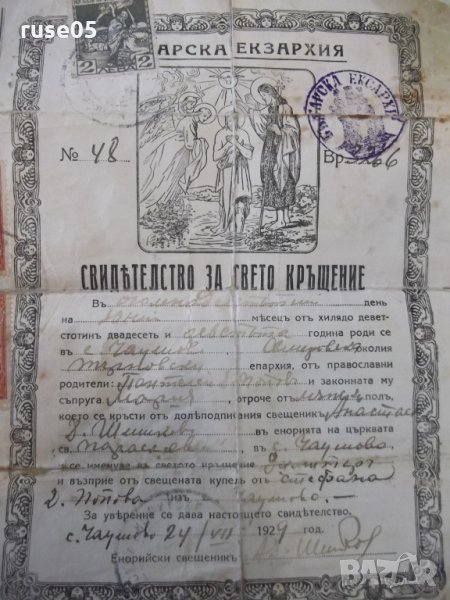 ruse05
2 2
АРСКА ЕКЗАРХИЯ
БЪЛГАРСКА ЕКСАРХИЯ
№ 48 Вр. 66
СВИДѢТЕЛСТВО ЗА СВЕТО КРЪЩЕНИЕ
Въ день
на юний месецъ отъ хилядо девет-
стотинъ двадесеть и година роди се
въ с. Чаушово, околия
Търновска епархия, отъ православни
родители: Попов и законната му
съпруга Мария, отроче отъ мѫжки полъ,
което се кръсти отъ долѣподписания свещеникъ Анастас
Д. Шишков въ енорията на църквата
св. въ с. Чаушово
и се именува въ светото кръщение Димитъръ
и възприе отъ свещената купель отъ Стефана
Д. Попова изъ с. Чаушово.
За уверение се дава настоящето свидетелство.
с. Чаушово 24/VII 1929 год.
Енорийски свещеникъ: Шишков
BAZAR.BG